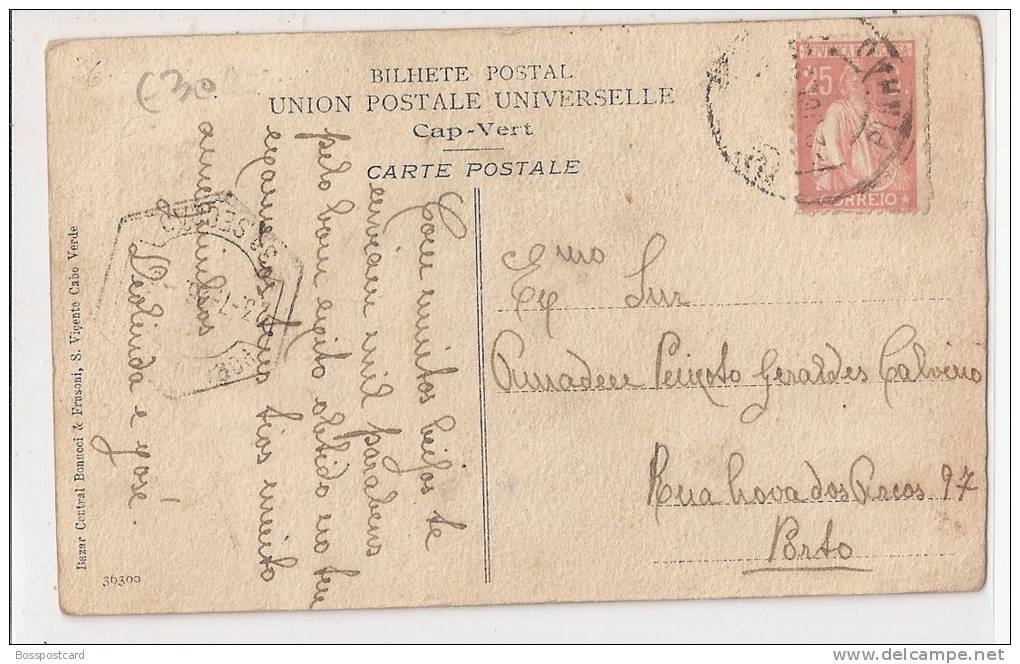 BILHETE POSTAL
UNION POSTALE UNIVERSELLE
Cap-Vert
CARTE POSTALE
25
CORREIO
€30
Com muitos beijos te
enviam mil parabens
pelo bom exito obtido no teu
exame os teus tios muito
amiguinhos
Deolinda e José.
Exmo Snr
Amadeu Peixoto Geraldes Calvinio
Rua Nova dos Arcos 97
Porto
Bazar Central Bonucci & Frusoni, S. Vigente Cabo Verde
36300
Bosspostcard
www.delcampe.net